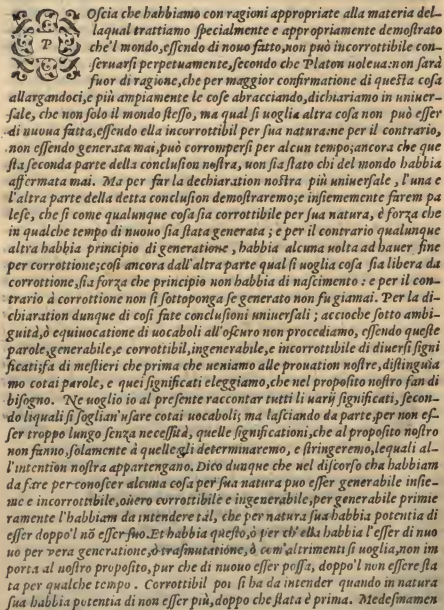 P Oscia che habbiamo con ragioni appropriate alla materia del-
laqual trattiamo specialmente e appropriamente demostrato
che'l mondo,essendo di nouo fatto,non può incorrottibile con-
seruarsi perpetuamente,secondo che Platon uoleua:non sarà
fuor di ragione,che per maggior confirmatione di questa cosa
allargandoci,e più ampiamente le cose abracciando,dichiariamo in uniuer-
sale, che non solo il mondo stesso, ma qual si uoglia altra cosa non può esser
di nuoua fatta,essendo ella incorrottibil per sua natura:ne per il contrario,
non essendo generata mai,può corrompersi per alcun tempo;ancora che que
sta seconda parte della conclusion nostra, non sia stato chi del mondo habbia
affermata mai. Ma per far la dechiaration nostra più uniuersale , l'una e
l'altra parte della detta conclusion demostraremo;e insiememente farem pa
lese, che si come qualunque cosa sia corrottibile per sua natura, è forza che
in qualche tempo di nuouo sia stata generata ; e per il contrario qualunque
altra habbia principio di generatione , habbia alcuna uolta ad hauer fine
per corrottione;così ancora dall'altra parte qual si uoglia cosa sia libera da
corrottione,sia forza che principio non habbia di nascimento : e per il con-
trario à corrottione non si sottoponga se generato non fu giamai. Per la di-
chiaration dunque di così fate conclusioni uniuersali ; accioche sotto ambi-
guità,ò equiuocatione di uocaboli all'oscuro non procediamo, essendo queste
parole,generabile,e corrottibil,ingenerabile,e incorrottibile di diuersi signi
ficati;fa di mestieri che prima che ueniamo alle prouation nostre,distinguia
mo cotai parole, e quei significati eleggiamo,che nel proposito nostro fan di
bisogno. Ne uoglio io al presente raccontar tutti li uarij significati, secon-
do liquali si soglian'usare cotai uocaboli; ma lasciando da parte,per non es-
ser troppo lungo senza necessità, quelle significationi,che al proposito nostro
non fanno,solamente à quelle gli determinaremo, e stringeremo,lequali al-
l'intention nostra appartengano. Dico dunque che nel discorso cha habbiam
da fare per conoscer alcuna cosa per sua natura puo esser generabile insie-
me e incorrottibile,ouero corrottibile e ingenerabile,per generabile primie
ramente l'habbiam da intendere tal, che per natura sua habbia potentia di
esser doppo'l nō esser suo.Et habbia questo,ò per ch'ella habbia l'esser di nuo
uo per vera generatione,ò trasmutatione, ò com'altrimenti si uoglia,non im
porta al nostro proposito, pur che di nuouo esser possa, doppo'l non essere sta
ta per qualche tempo . Corrottibil poi si ha da intender quando in natura
sua habbia potentia di non esser più,doppo che stata è prima. Medesmamen